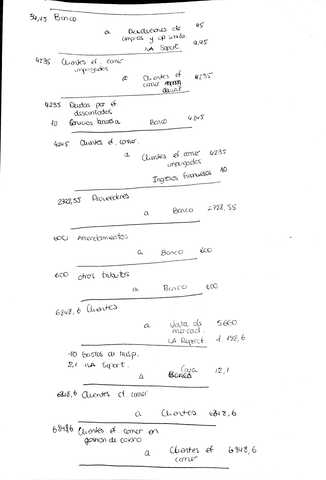 54,45 Banco
a Devoluciones de 45
compras y op simil.
IVA Soport. 9,45
4235 Clientes ef. comer
impagados
a Clientes ef. 4235
comer
descnt
4235 Deudas por ef
descontados
10 Servicios bancarios a Banco 4245
4245 Clientes ef. comer.
a Clientes ef. comer 4235
impagados
Ingresos financieros 10
2728,55 Proveedores
a Banco 2728,55
600 Arrendamientos
a Banco 600
600 otros tributos
a Banco 600
6848,6 Clientes
a Venta de 5660
mercad.
IVA Reperct. 1188,6
10 Gastos de transp.
2,1 IVA Soport.
a Caja 12,1
6848,6 Clientes ef comer
a Clientes 6848,6
6848,6 Clientes ef. comer en
gestion de cobro
a Clientes ef 6848,6
comer